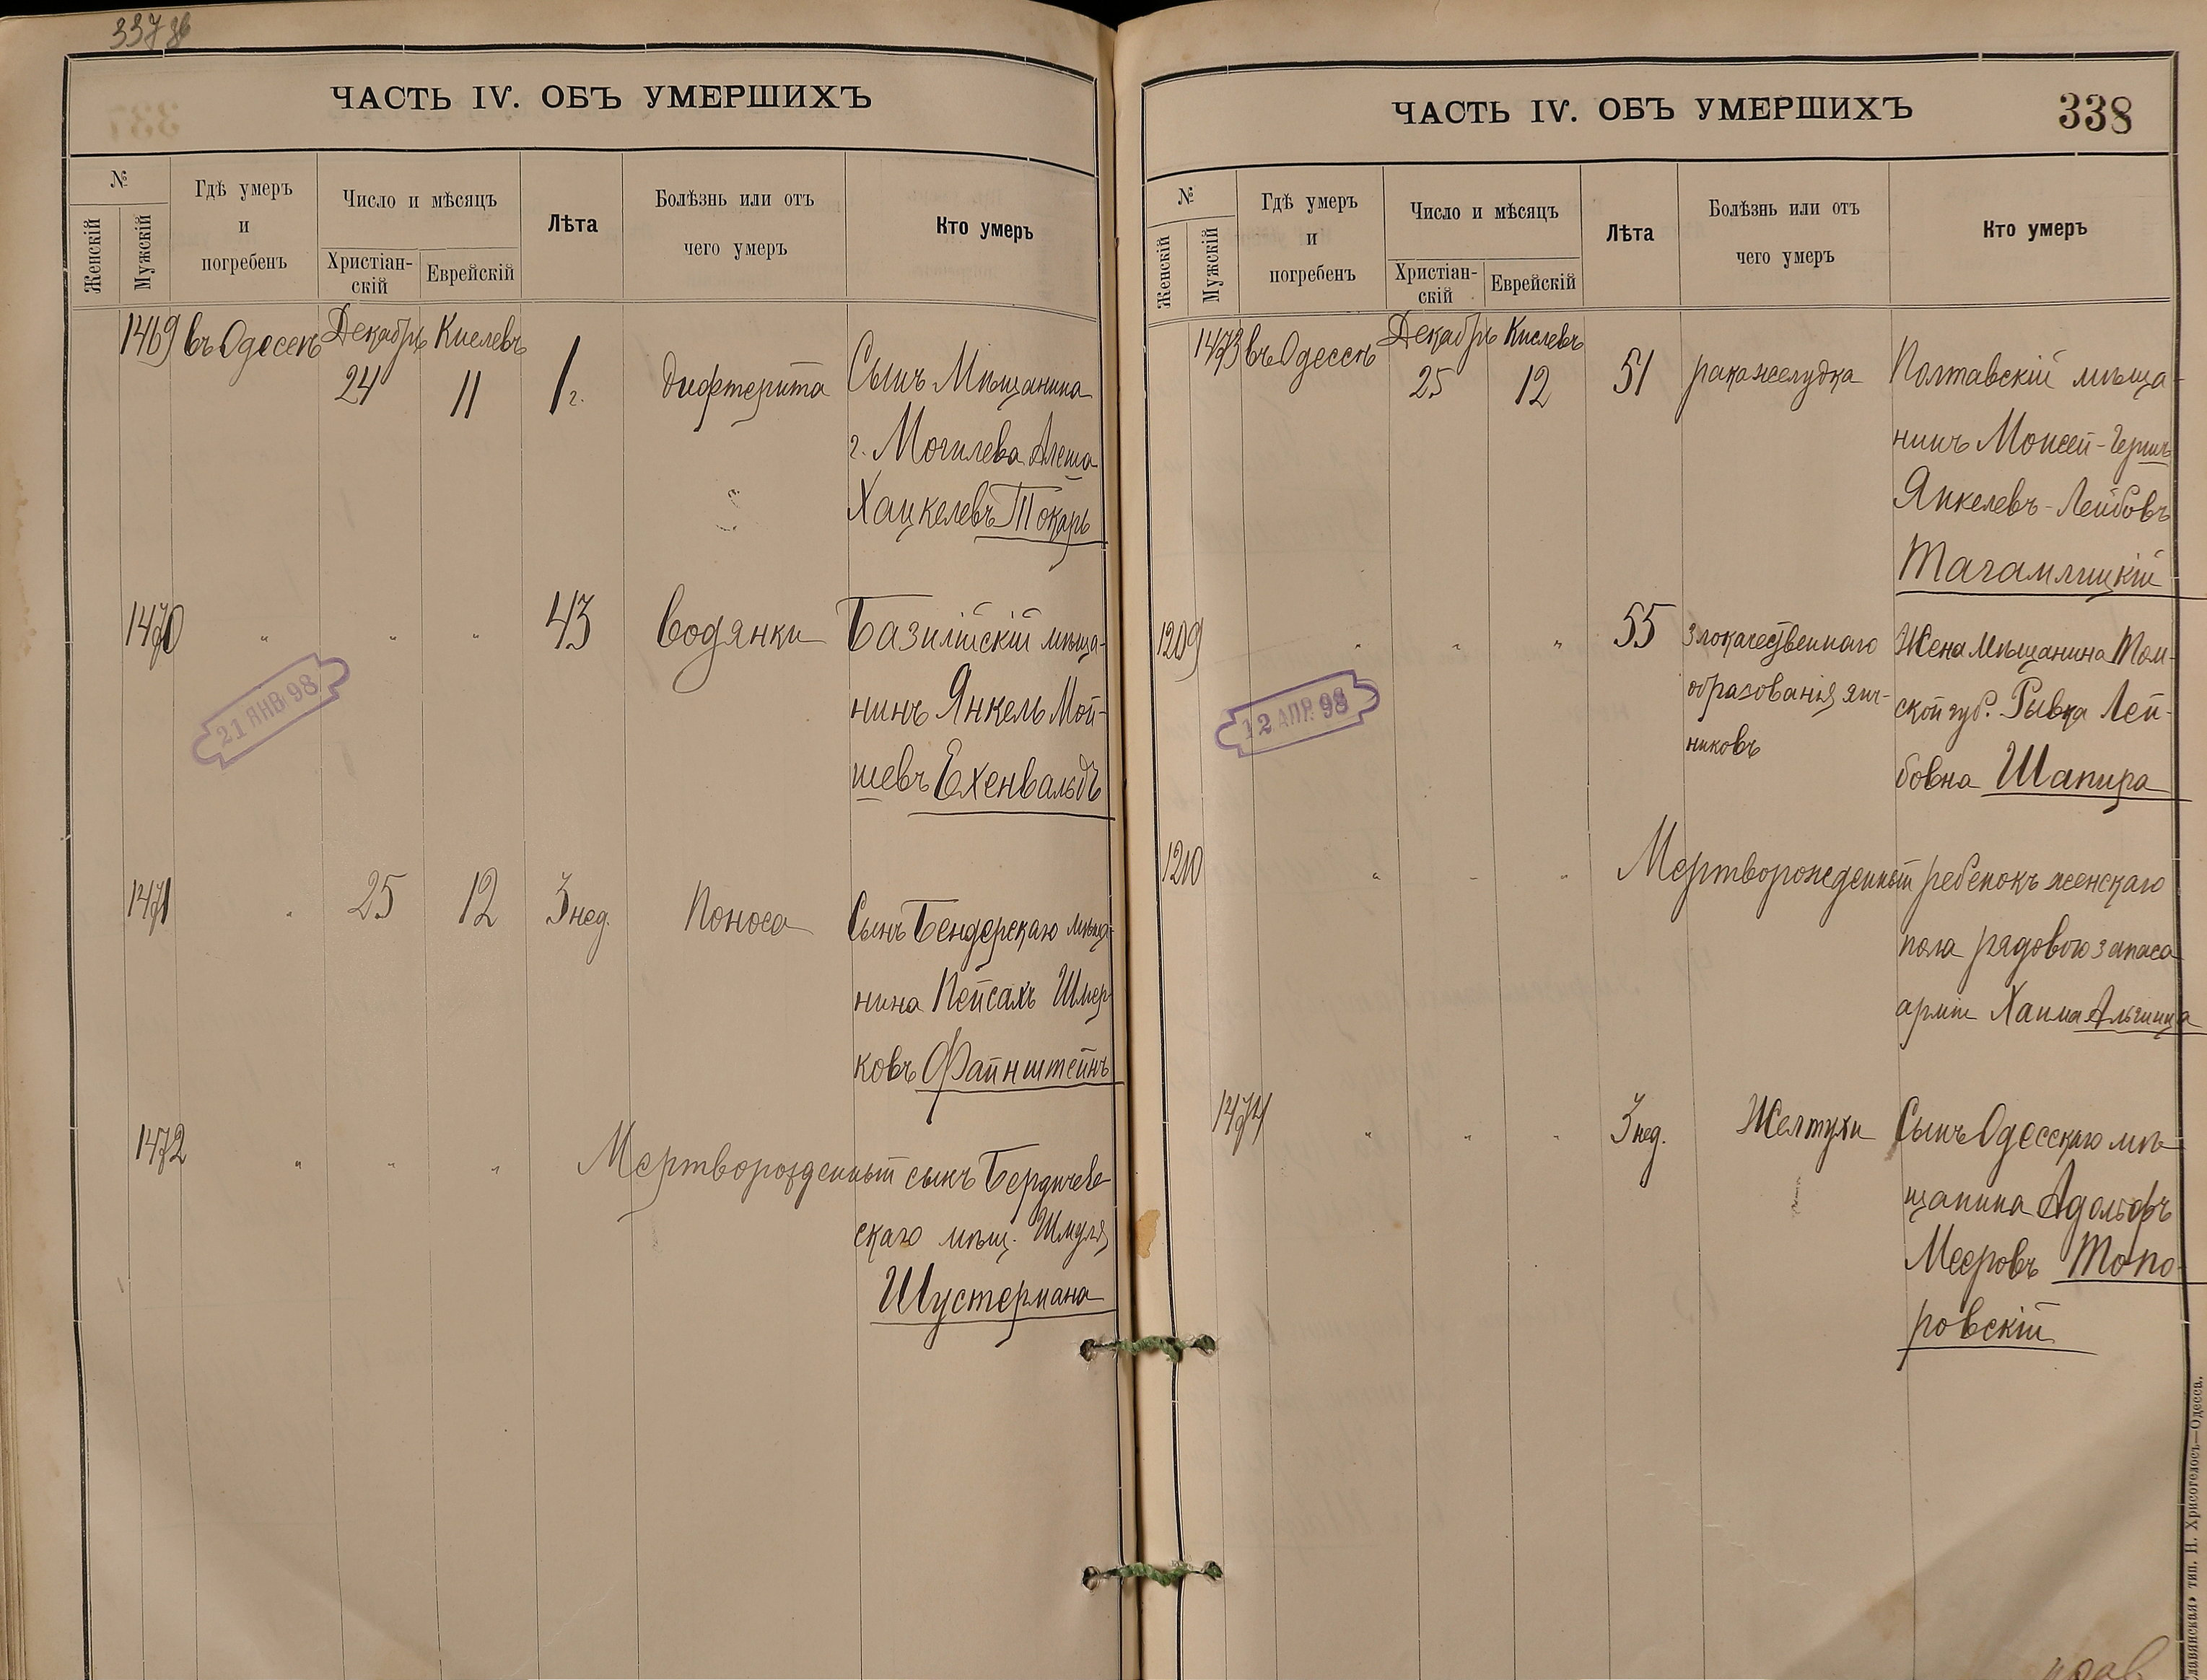 337 об
ЧАСТЬ IV. ОБЪ УМЕРШИХЪ
№
Женскій
Мужскій
Гдѣ умеръ
и
погребенъ
Число и мѣсяцъ
Христіан-
скій
Еврейскій
Лѣта
Болѣзнь или отъ
чего умеръ
Кто умеръ
1469 въ Одессѣ Декабрь 24 Кислевъ 11 1 г. дифтерита Сынъ Мѣщанина
г. Могилева
Хацкелевъ Токарь
1470 " " " 43 водянки Базилійскій мѣща-
нинъ Янкель Мой-
шевъ Ехенвальдъ
21 ЯНВ 98
1471 " 25 12 3 нед. Поноса Сынъ Бендерскаго мѣща-
нина Пейсахъ Шмер-
ковъ Файнштейнъ
1472 " " " Мертворожденный сынъ Бердичев-
скаго мѣщ. Шмуля
Шустермана
ЧАСТЬ IV. ОБЪ УМЕРШИХЪ
338
№
Женскій
Мужскій
Гдѣ умеръ
и
погребенъ
Число и мѣсяцъ
Христіан-
скій
Еврейскій
Лѣта
Болѣзнь или отъ
чего умеръ
Кто умеръ
1473 въ Одессѣ Декабрь 25 Кислевъ 12 51 рака желудка Полтавскій мѣща-
нинъ Моисей-Гершъ
Янкелевъ-Лейбовъ
Тагамлицкій
1209 " " " 55 злокачественнаго Жена мѣщанина Том-
образованія яич- ской губ. Рывка Лей-
никовъ бовна Шапира
12 АПР. 98
1210 " " " Мертворожденный ребенокъ женскаго
пола рядового запаса
арміи Хаима
1474 " " " 3 нед. Желтухи Сынъ Одесскаго мѣ-
щанина Адольфъ
Мееровъ Топо-
ровскій
тип. Н. Хрисогелосъ—Одесса.